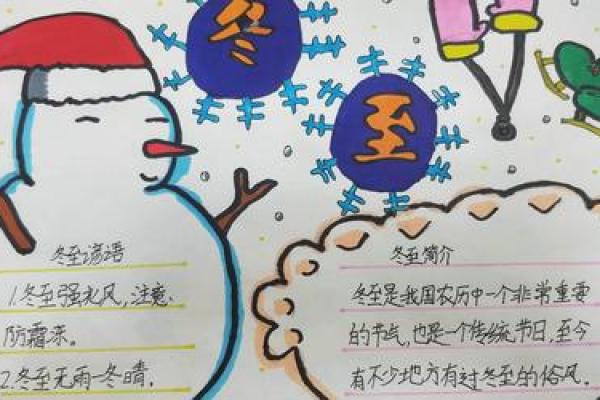 冬
至
冬至谚语
1.冬至强北风,注意
防霜冻。
2.冬至无雨一冬晴.
冬至简介
冬至是我国农历中一个非常重要
的节气,也是一个传统节日,至今
有不少地方有过冬至的俗风.